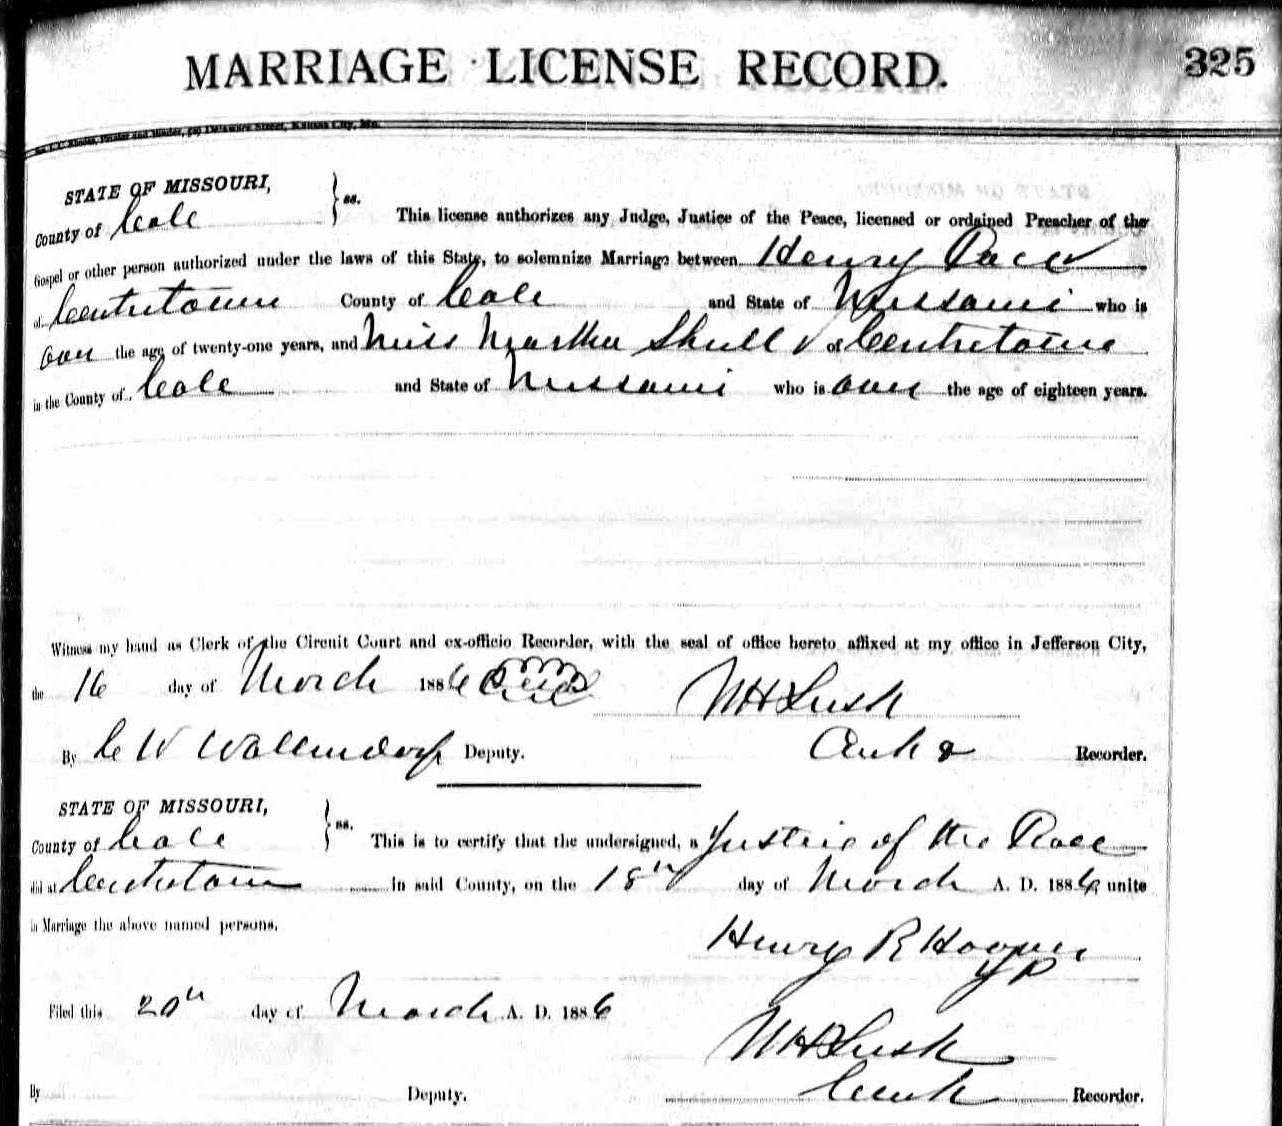 MARRIAGE LICENSE RECORD. 325
STATE OF MISSOURI,
County of Cole } ss. This license authorizes any Judge, Justice of the Peace, licensed or ordained Preacher of the
Gospel or other person authorized under the laws of this State, to solemnize Marriage between Henry Pace
of Centretown County of Cole and State of Missouri who is
over the age of twenty-one years, and Miss Martha Skull of Centretown
in the County of Cole and State of Missouri who is over the age of eighteen years.
Witness my hand as Clerk of the Circuit Court and ex-officio Recorder, with the seal of office hereto affixed at my office in Jefferson City,
the 16 day of March 1886
By C W Wallendorf Deputy. W H Lusk
Clerk & Recorder.
STATE OF MISSOURI,
County of Cole } ss. This is to certify that the undersigned, a Justice of the Peace
did at Centretown in said County, on the 18th day of March A. D. 1886 unite
in Marriage the above named persons.
Henry R Hooper
JP
Filed this 20th day of March A. D. 1886
W H Lusk
By Deputy. Clerk Recorder.